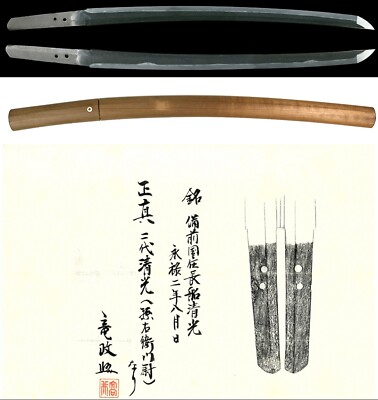 銘 備前国住長船清光
永禄二年八月日
正真 二代清光（孫右衛門尉）
なり